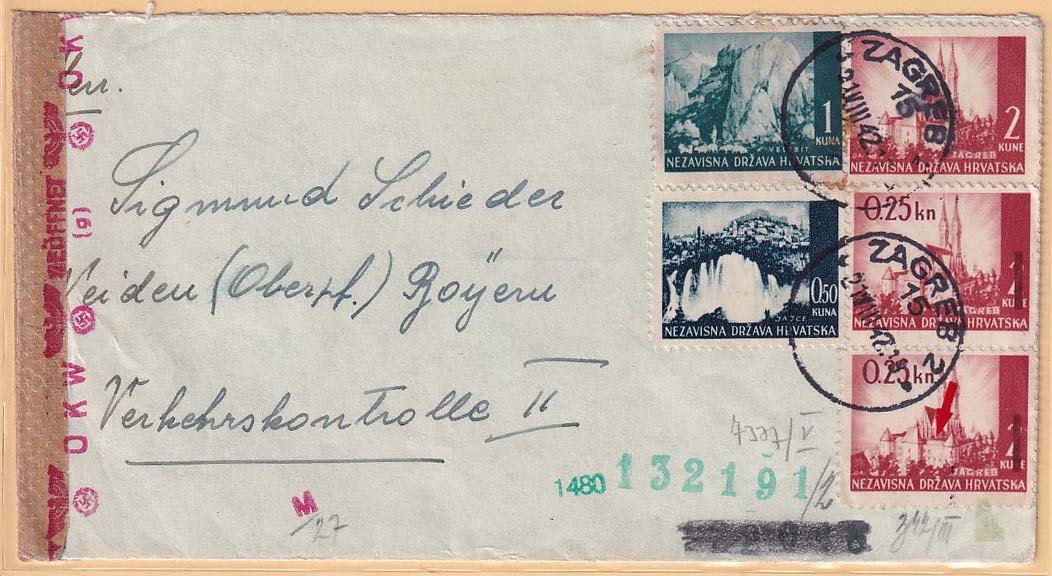 O K
GEÖFFNET
(g)
O K W
Sigmund Schieder
Weiden (Oberpf.) Bayern
Verkehrskontrolle II
1 KUNA
VELEBIT
NEZAVISNA DRŽAVA HRVATSKA
2 KUNE
ZAGREB
NEZAVISNA DRŽAVA HRVATSKA
0.50 KUNA
JAJCE
NEZAVISNA DRŽAVA HRVATSKA
0.25 kn
KUNE
ZAGREB
NEZAVISNA DRŽAVA HRVATSKA
0.25 kn
KUNE
ZAGREB
NEZAVISNA DRŽAVA HRVATSKA
ZAGREB
15
21 VIII 42
ZAGREB 2
15
21 VIII 42
1480 132191
/2
M
/27